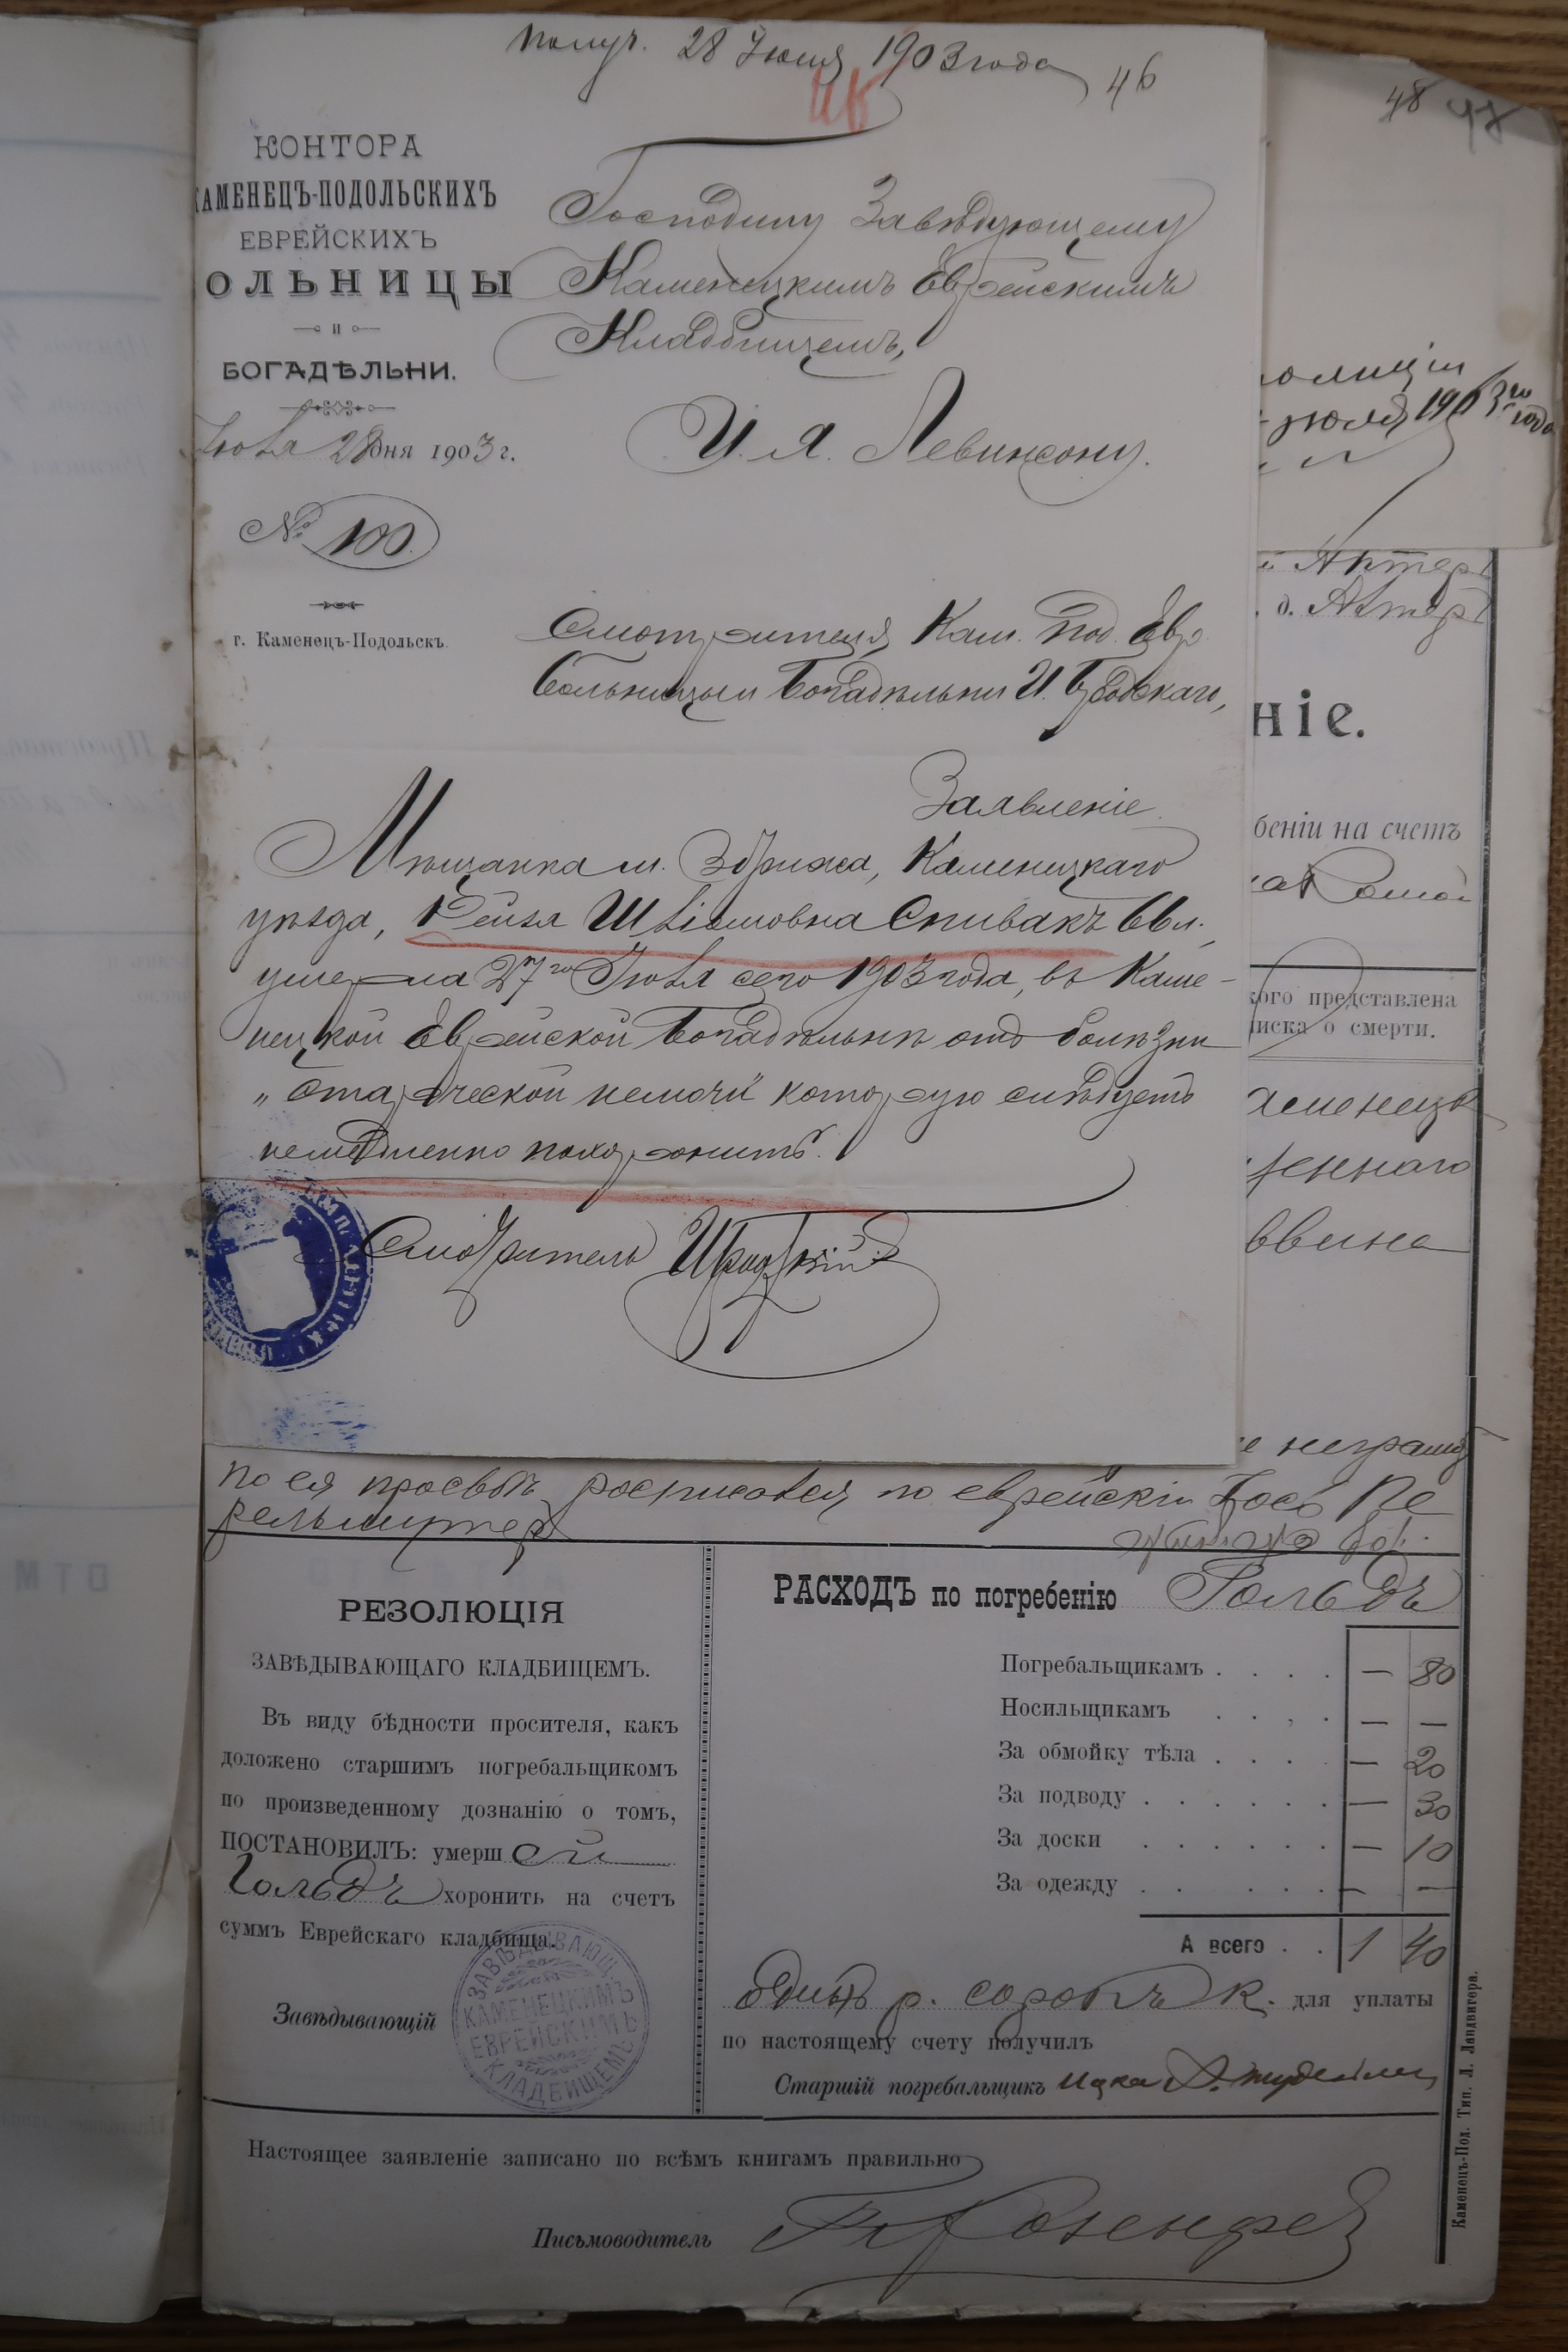 Получ. 28 Июля 1903 года
46
48
КОНТОРА
КАМЕНЕЦЪ-ПОДОЛЬСКИХЪ
ЕВРЕЙСКИХЪ
ОЛЬНИЦЫ
и
БОГАДѢЛЬНИ.
Іюля 28 дня 1903 г.
№ 100.
г. Каменецъ-Подольскъ.
Господину Завѣдующему
Каменецкимъ Еврейскимъ
Кладбищемъ,
И. Я. Левинсону.
Смотрителя Кам. Под. Евр.
Больницы и Богадѣльни И.
Заявленіе
Мѣщанка м. Збрижа, Каменецкаго
уѣзда, Рейзя Шліомовна Спивакъ 66 л.,
умерла 27го Іюля сего 1903 года, въ Каме-
нецкой Еврейской Богадѣльнѣ отъ болѣзни
„Старческой немочи" которую слѣдуетъ
немедленно похоронить.
Смотритель
олиціи
іюля 1903 го года
Актеръ
д. Актеръ
ніе.
беніи на счетъ
кого представлена
писка о смерти.
аменецъ
ввина
неграмо
по ея просьбѣ росписался по еврейскіи Іосъ Пе
рельмутеръ
РЕЗОЛЮЦІЯ
ЗАВѢДЫВАЮЩАГО КЛАДБИЩЕМЪ.
Въ виду бѣдности просителя, какъ
доложено старшимъ погребальщикомъ
по произведенному дознанію о томъ,
ПОСТАНОВИЛЪ: умерш ей
Гольдъ хоронить на счетъ
суммъ Еврейскаго кладбища.
Завѣдывающій
ЗАВѢДЫВАЮЩ.
КАМЕНЕЦКИМЪ
ЕВРЕЙСКИМЪ
КЛАДБИЩЕМЪ
РАСХОДЪ по погребенію Гольдъ
Погребальщикамъ . . . . — 80
Носильщикамъ . . . . — —
За обмойку тѣла . . . . — 20
За подводу . . . . . . — 30
За доски . . . . . . — 10
За одежду . . . . . . — —
А всего . . 1 40
Одинъ р. сорокъ к. для уплаты
по настоящему счету получилъ
Старшій погребальщикъ Ицка
Настоящее заявленіе записано по всѣмъ книгамъ правильно
Письмоводитель
Каменецъ-Под. Тип. Л. Ландвигера.